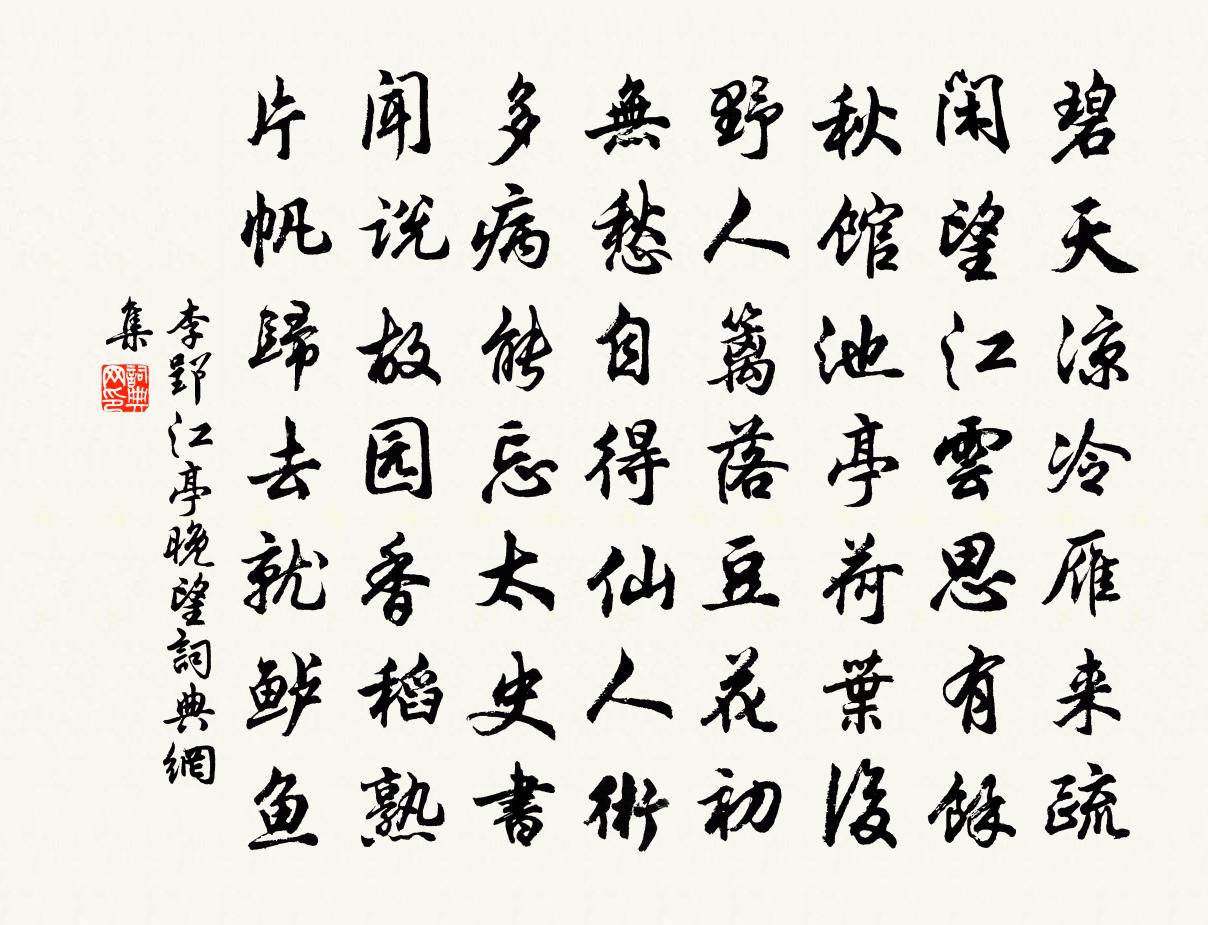 碧天凉冷雁来疏
闲望江雲思有餘
秋馆池亭荷葉後
野人籬落豆花初
無愁自得仙人術
多病能忘太史書
闻说故园香稻熟
片帆歸去就鲈鱼
李郢江亭晚望詞典網
集
詞典网印